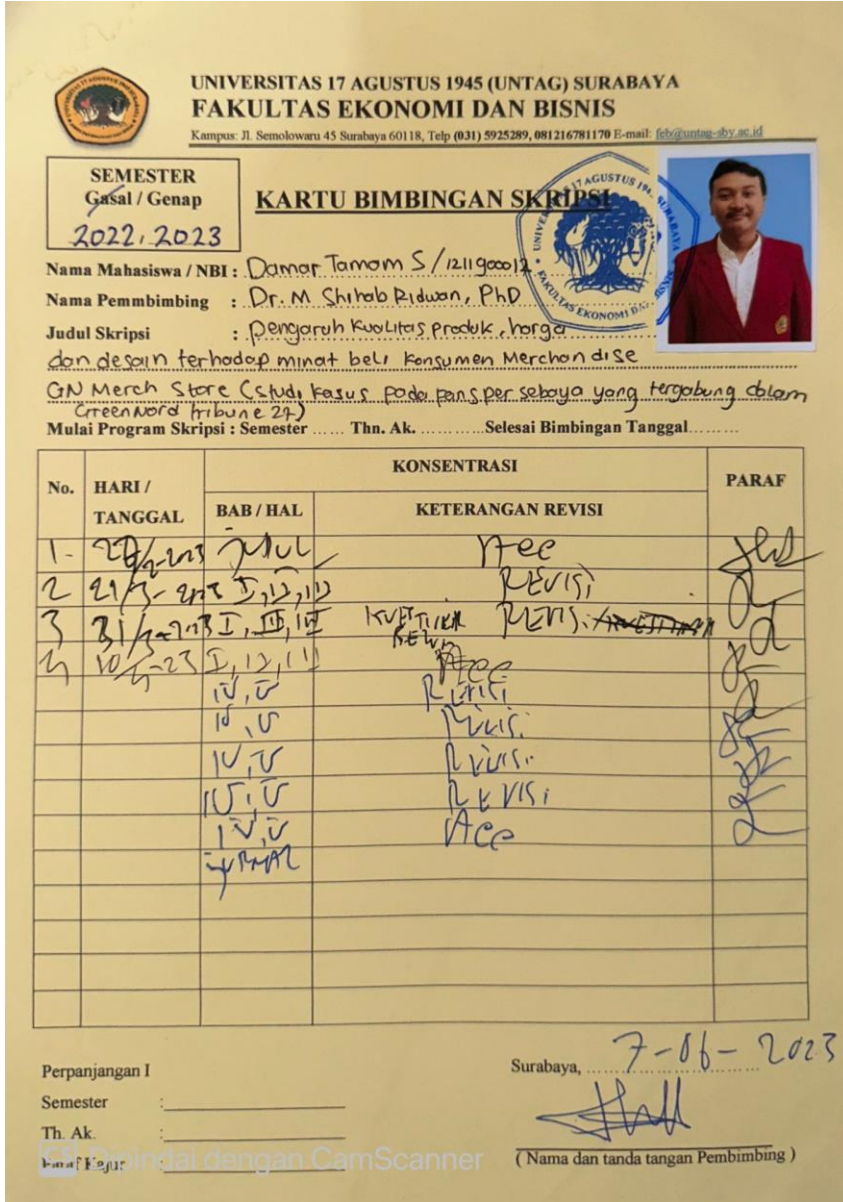 UNIVERSITAS 17 AGUSTUS 1945 (UNTAG) SURABAYA
FAKULTAS EKONOMI DAN BISNIS
Kampus: Jl. Semolowaru 45 Surabaya 60118, Telp (031) 5925289, 081216781170 E-mail: feb@untag-sby.ac.id
SEMESTER
Gasal / Genap
2022, 2023
KARTU BIMBINGAN SKRIPSI
Nama Mahasiswa / NBI : Damar Tamam S / 1211900012
Nama Pemmbimbing : Dr. M Shihab Ridwan, PhD
Judul Skripsi : pengaruh Kualitas produk, harga
dan desain terhadap minat beli Konsumen Merchandise
GN Merch Store (studi kasus pada fans persebaya yang tergabung dalam
Green Nord tribune 27)
Mulai Program Skripsi : Semester ...... Thn. Ak. ............Selesai Bimbingan Tanggal.........
No. HARI / TANGGAL KONSENTRASI PARAF
BAB / HAL KETERANGAN REVISI
1. Judul Acc
2 21/3-2023 I, II, III REVISI
3 31/3-2023 I, II, III REVISI
4 10/4-23 I, II, III Acc
IV, V REVISI
IV, V REVISI
IV, V REVISI
IV, V REVISI
IV, V Acc
Perpanjangan I
Semester :
Th. Ak. :
Paraf Kajur :
Surabaya, 7-06-2023
( Nama dan tanda tangan Pembimbing )
UNIVERSITAS 17 AGUSTUS 1945 SURABAYA
FAKULTAS EKONOMI DAN BISNIS
CS Dipindai dengan CamScanner